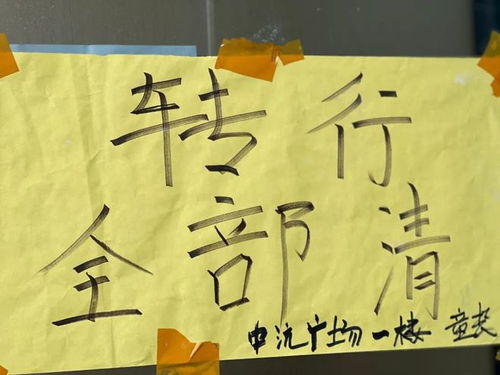 转行
全部清
中沅广场一楼 童装